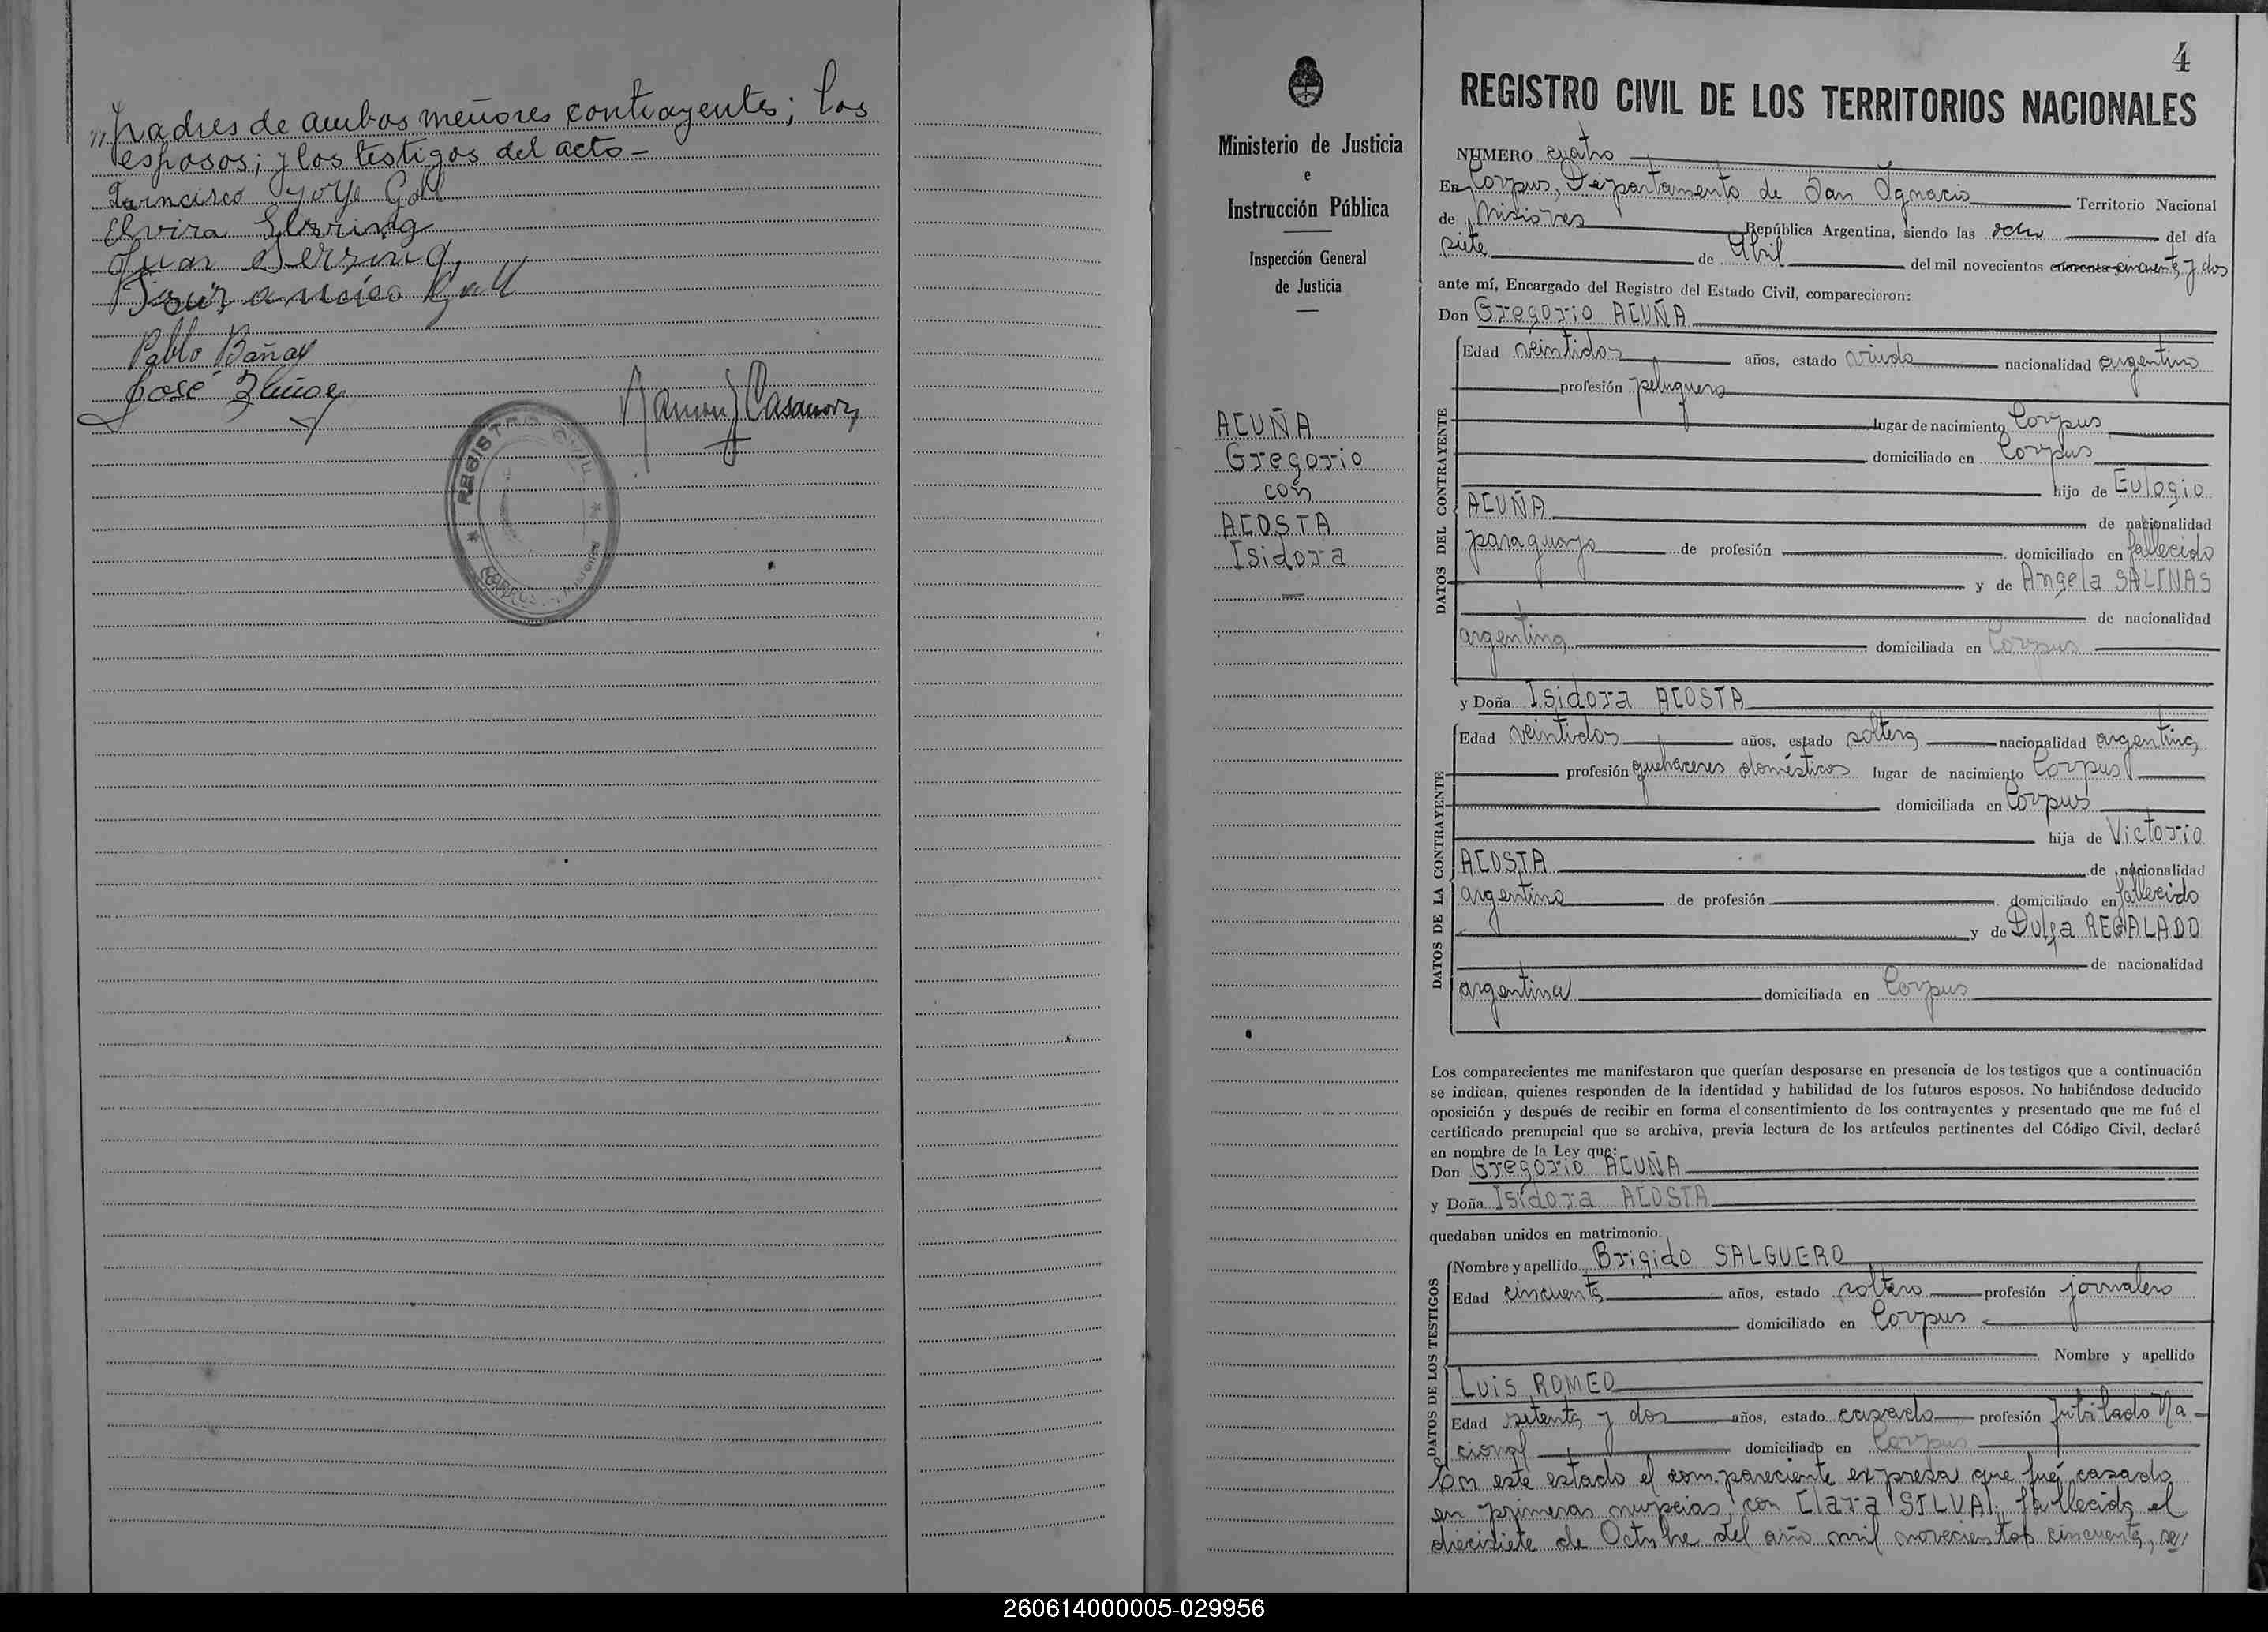 "padres de ambos menores contrayentes; los
esposos; y los testigos del acto—
Elvira
Pablo
José
Ramon J Casanova
REGISTRO CIVIL
CORPUS
Ministerio de Justicia
e
Instrucción Pública
Inspección General
de Justicia
ACUÑA
Gregorio
con
ACOSTA
Isidora
4
REGISTRO CIVIL DE LOS TERRITORIOS NACIONALES
NUMERO cuatro
En Corpus, Departamento de San Ignacio Territorio Nacional
de Misiones República Argentina, siendo las ocho del día
siete de Abril del mil novecientos cuarenta cincuenta y dos
ante mí, Encargado del Registro del Estado Civil, comparecieron:
Don Gregorio ACUÑA
DATOS DEL CONTRAYENTE
Edad veintidos años, estado viudo nacionalidad argentino
profesión peluquero
lugar de nacimiento Corpus
domiciliado en Corpus
hijo de Eulogio
ACUÑA de nacionalidad
paraguayo de profesión domiciliado en fallecido
y de Angela SALINAS
de nacionalidad
argentina domiciliada en Corpus
y Doña Isidora ACOSTA
DATOS DE LA CONTRAYENTE
Edad veintidos años, estado soltera nacionalidad argentina
profesión quehaceres domésticos lugar de nacimiento Corpus
domiciliada en Corpus
hija de Victorio
ACOSTA de nacionalidad
argentino de profesión domiciliado en fallecido
y de REGALADO
de nacionalidad
argentina domiciliada en Corpus
Los comparecientes me manifestaron que querían desposarse en presencia de los testigos que a continuación
se indican, quienes responden de la identidad y habilidad de los futuros esposos. No habiéndose deducido
oposición y después de recibir en forma el consentimiento de los contrayentes y presentado que me fué el
certificado prenupcial que se archiva, previa lectura de los artículos pertinentes del Código Civil, declaré
en nombre de la Ley que:
Don Gregorio ACUÑA
y Doña Isidora ACOSTA
quedaban unidos en matrimonio.
DATOS DE LOS TESTIGOS
Nombre y apellido Brigido SALGUERO
Edad cincuenta años, estado soltero profesión jornalero
domiciliado en Corpus
Nombre y apellido
Luis ROMEO
Edad setenta y dos años, estado casado profesión Jubilado Na-
cional domiciliado en Corpus
En este estado el compareciente expresa que fué casado
en primeras nupcias con Clara SILVA; fallecida el
diecisiete de Octubre del año mil novecientos cincuenta, se/
260614000005-029956